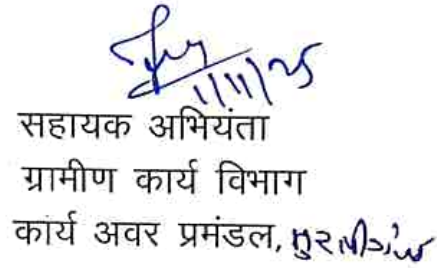 11/11/25
सहायक अभियंता
ग्रामीण कार्य विभाग
कार्य अवर प्रमंडल, मुरलीगंज